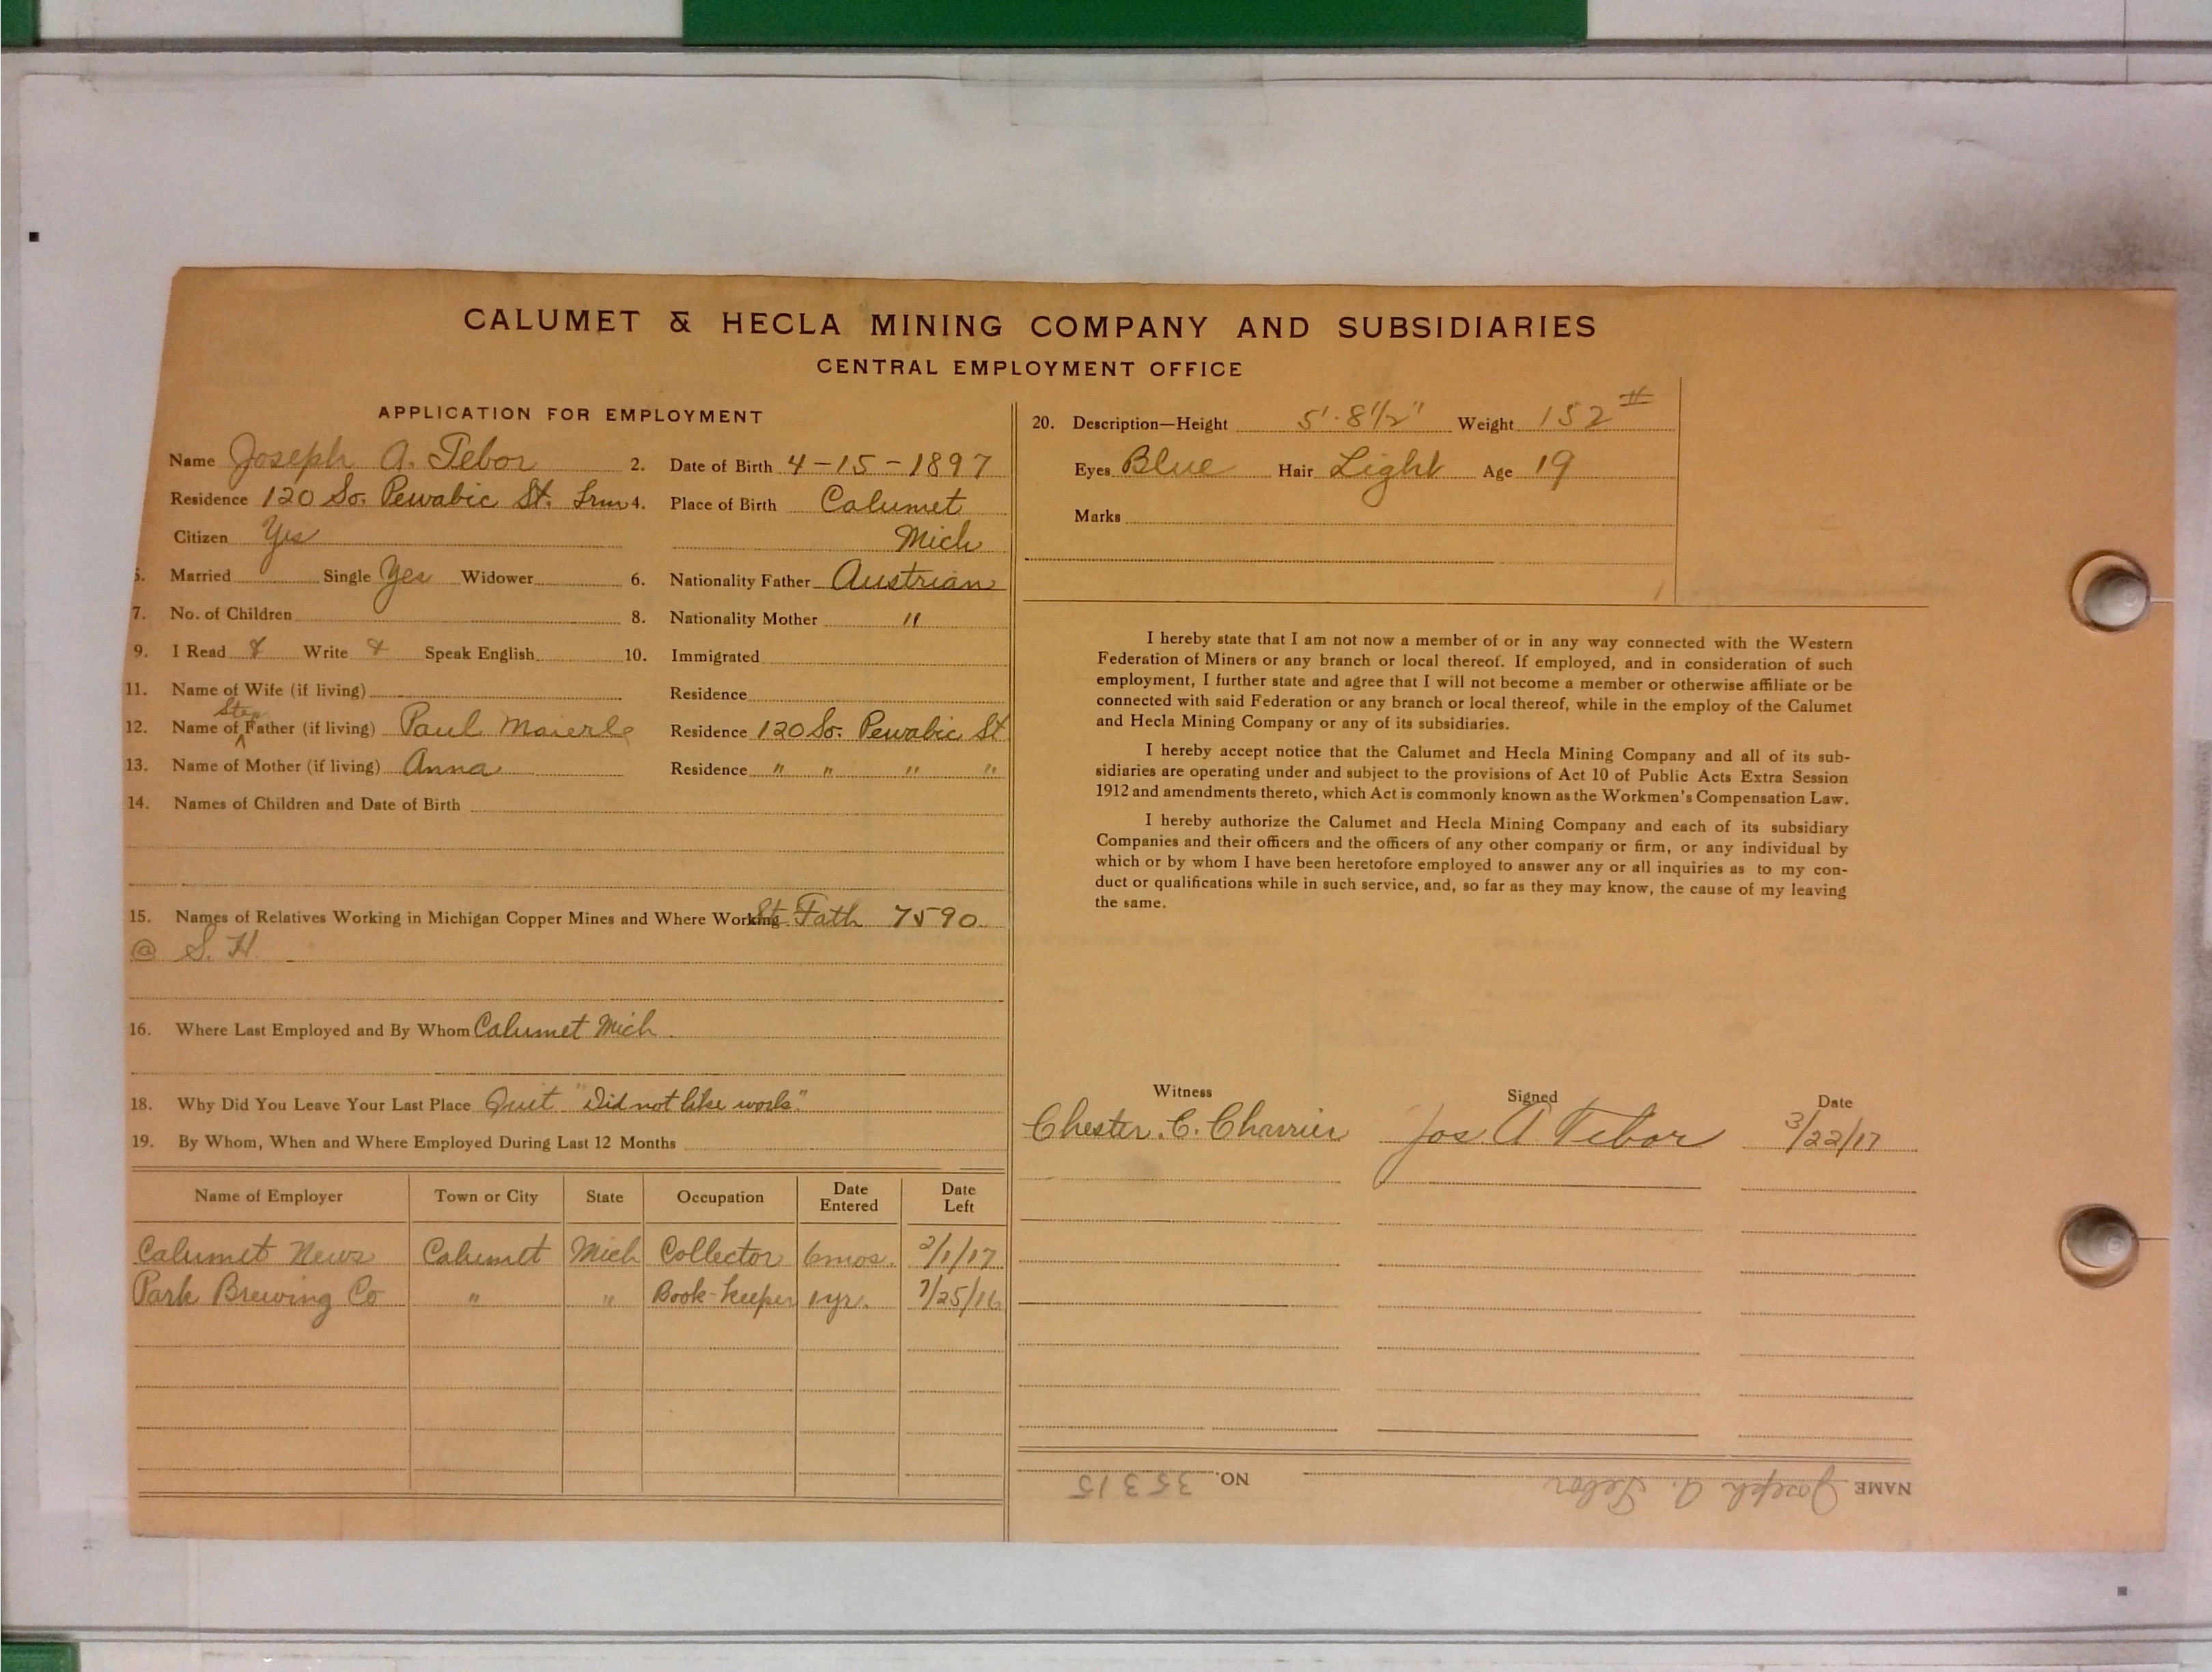 CALUMET & HECLA MINING COMPANY AND SUBSIDIARIES
CENTRAL EMPLOYMENT OFFICE
APPLICATION FOR EMPLOYMENT
Name Joseph A. Tebor 2. Date of Birth 4-15-1897
Residence 120 So. Pewabic St. Lrm 4. Place of Birth Calumet
Citizen Yes Mich
5. Married Single Yes Widower 6. Nationality Father Austrian
7. No. of Children 8. Nationality Mother "
9. I Read & Write & Speak English 10. Immigrated
11. Name of Wife (if living) Residence
12. Name of Step Father (if living) Paul Maierle Residence 120 So. Pewabic St
13. Name of Mother (if living) Anna Residence " " " "
14. Names of Children and Date of Birth
15. Names of Relatives Working in Michigan Copper Mines and Where Working St. Fath 7590
@ S. H.
16. Where Last Employed and By Whom Calumet Mich.
18. Why Did You Leave Your Last Place Quit "Did not like work."
19. By Whom, When and Where Employed During Last 12 Months
Name of Employer Town or City State Occupation Date Entered Date Left
Calumet News Calumet Mich Collector 6mos. 2/1/17
Park Brewing Co " " Book-keeper 1yr. 7/25/16
20. Description—Height 5'-8½" Weight 152#
Eyes Blue Hair Light Age 19
Marks
I hereby state that I am not now a member of or in any way connected with the Western
Federation of Miners or any branch or local thereof. If employed, and in consideration of such
employment, I further state and agree that I will not become a member or otherwise affiliate or be
connected with said Federation or any branch or local thereof, while in the employ of the Calumet
and Hecla Mining Company or any of its subsidiaries.
I hereby accept notice that the Calumet and Hecla Mining Company and all of its sub-
sidiaries are operating under and subject to the provisions of Act 10 of Public Acts Extra Session
1912 and amendments thereto, which Act is commonly known as the Workmen's Compensation Law.
I hereby authorize the Calumet and Hecla Mining Company and each of its subsidiary
Companies and their officers and the officers of any other company or firm, or any individual by
which or by whom I have been heretofore employed to answer any or all inquiries as to my con-
duct or qualifications while in such service, and, so far as they may know, the cause of my leaving
the same.
Witness Signed Date
Chester. C. Charrier Jos. A Tebor 3/22/17
NAME Joseph A. Tebor NO. 35315